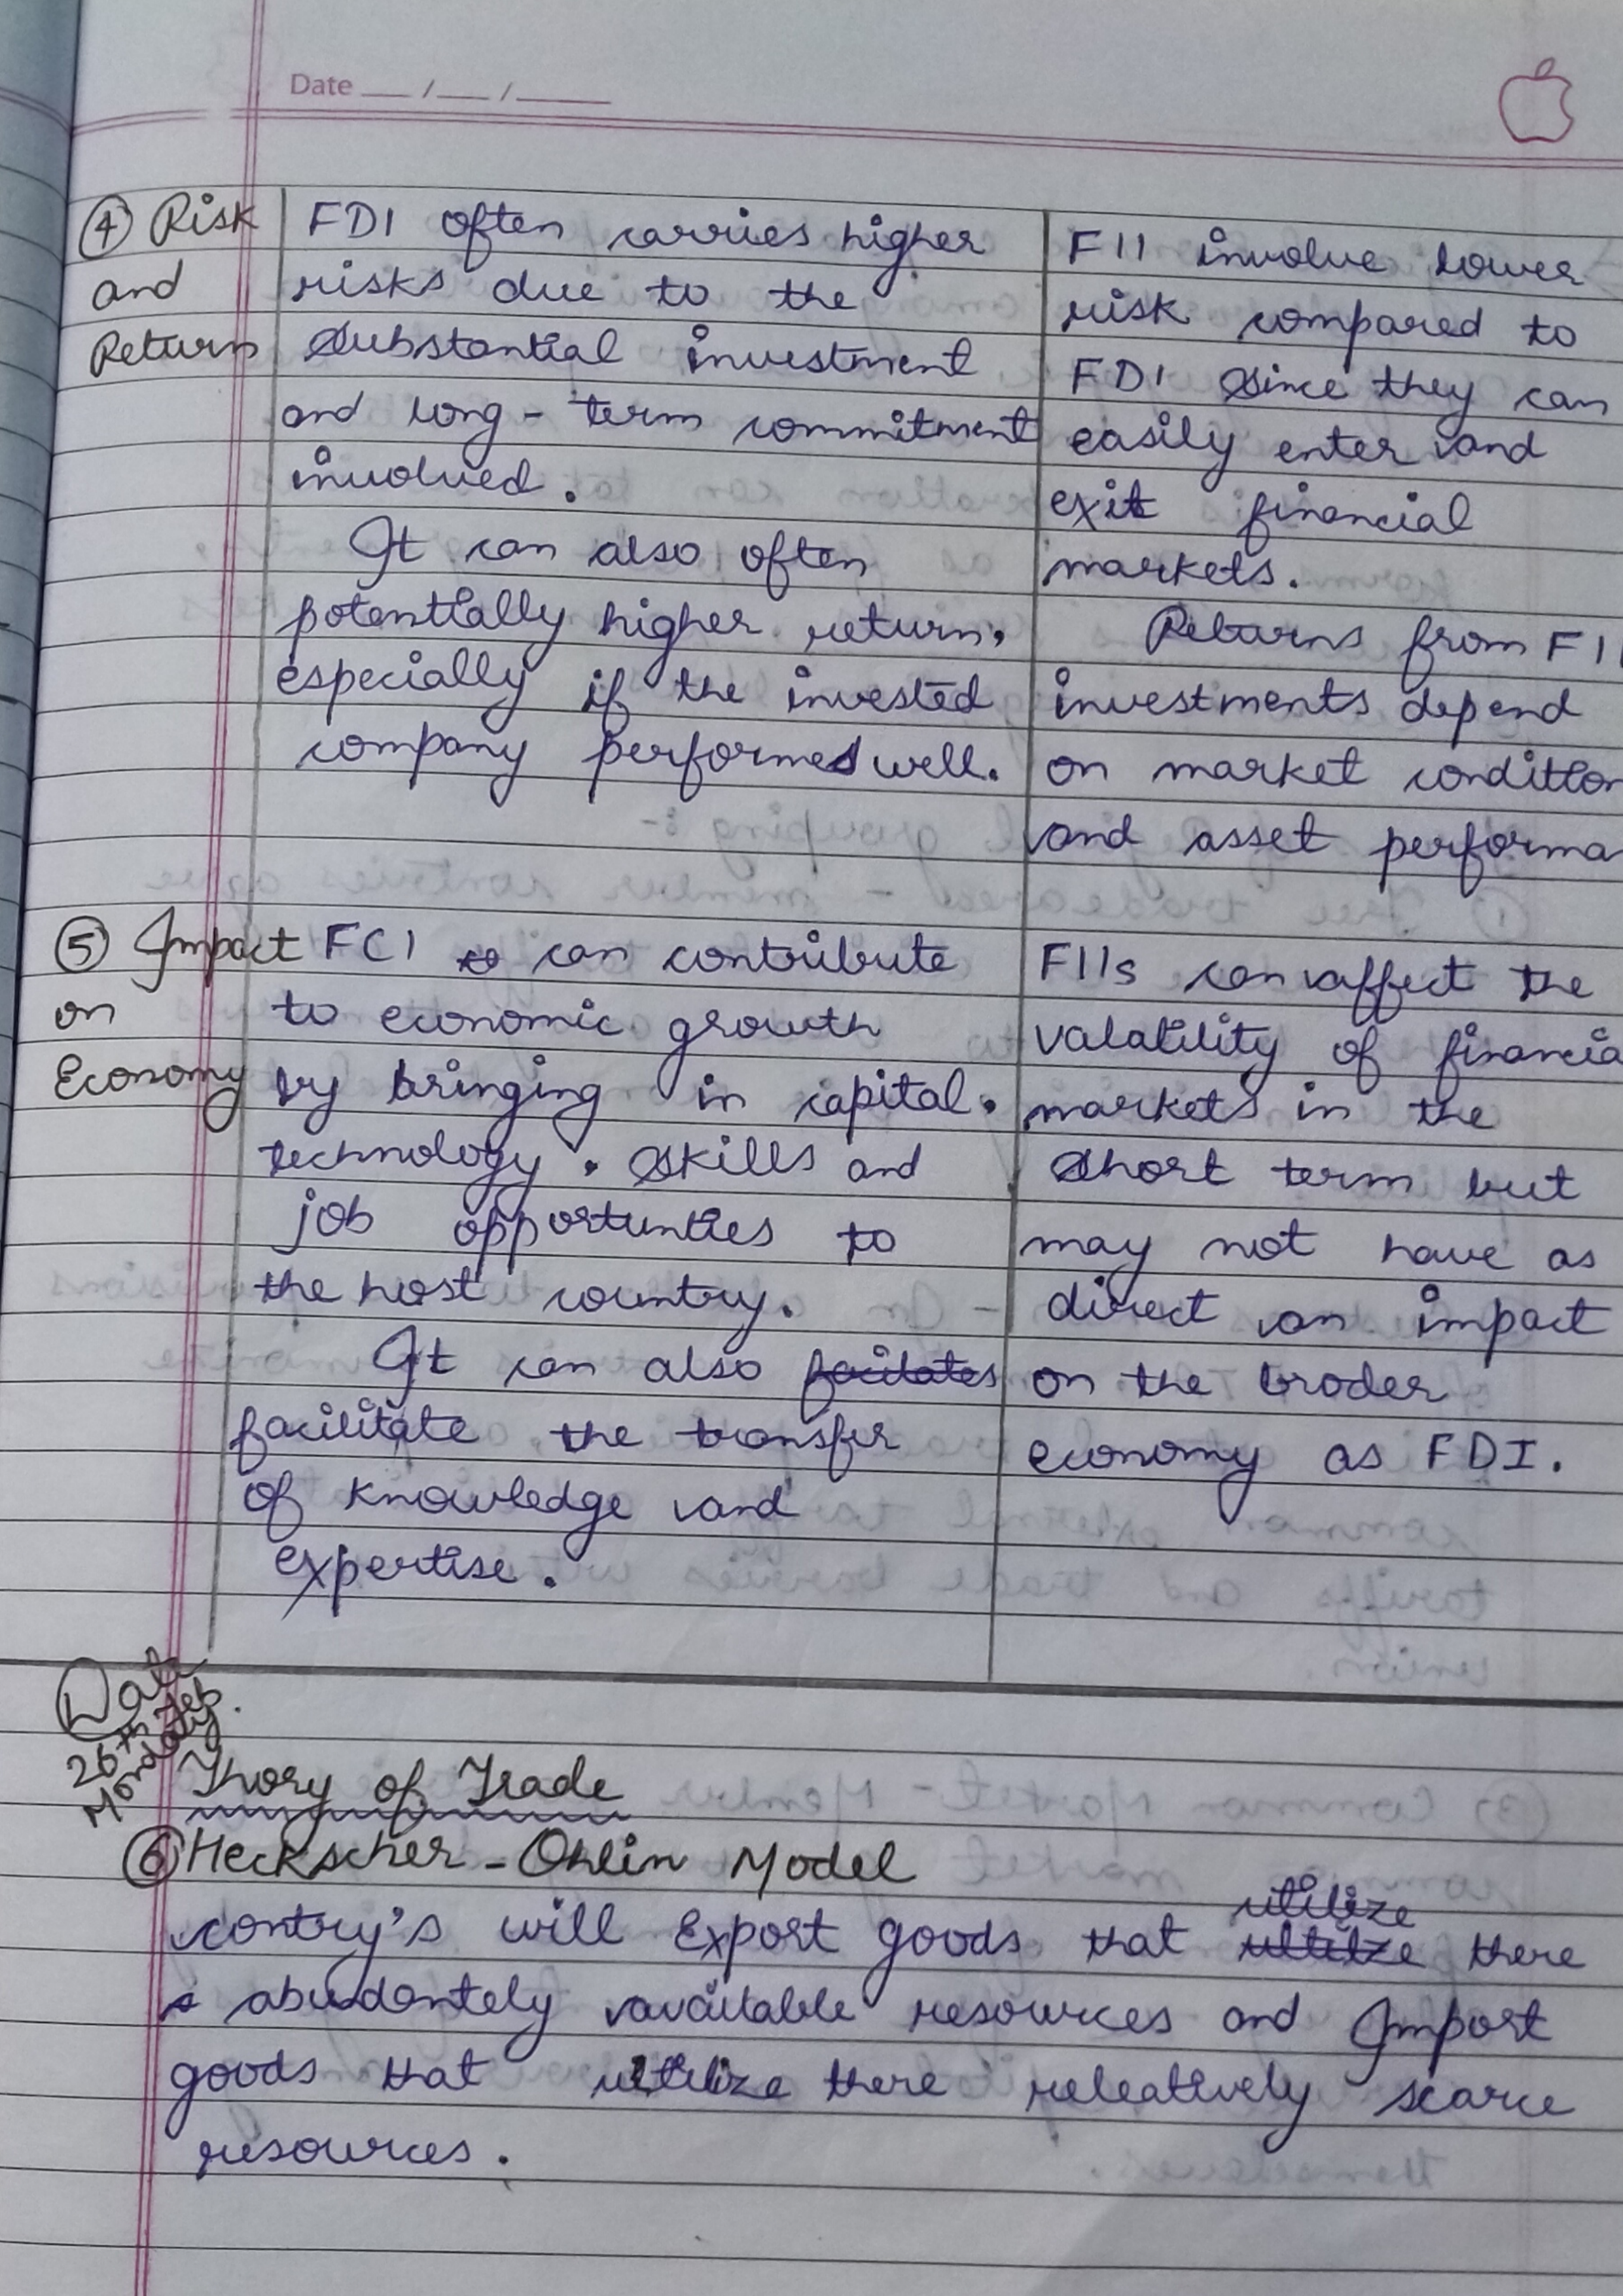 Date __/__/____
④ Risk
and
Return
FDI often carries higher
risks due to the
substantial investment
and long - term commitment
involved.
It can also often
potentially higher return,
especially if the invested
company performed well.
FII involve lower
risk compared to
FDI since they can
easily enter and
exit financial
markets.
Returns from FII
investments depend
on market condition
and asset performa
⑤ Impact
on
Economy
FCI can contribute
to economic growth
by bringing in capital,
technology, skills and
job opportunties to
the host country.
It can also facilitates
facilitate the transfer
of knowledge and
expertise.
FIIs can affect the
valatility of financia
markets in the
short term but
may not have as
direct an impact
on the broder
economy as FDI.
Date
26th Feb.
Monday
Thory of Trade
⑥ Heckscher - Ohlin Model
utilize
contry's will Export goods that there
abudantely available resources and Import
goods that utilize there releatively scarce
resources.